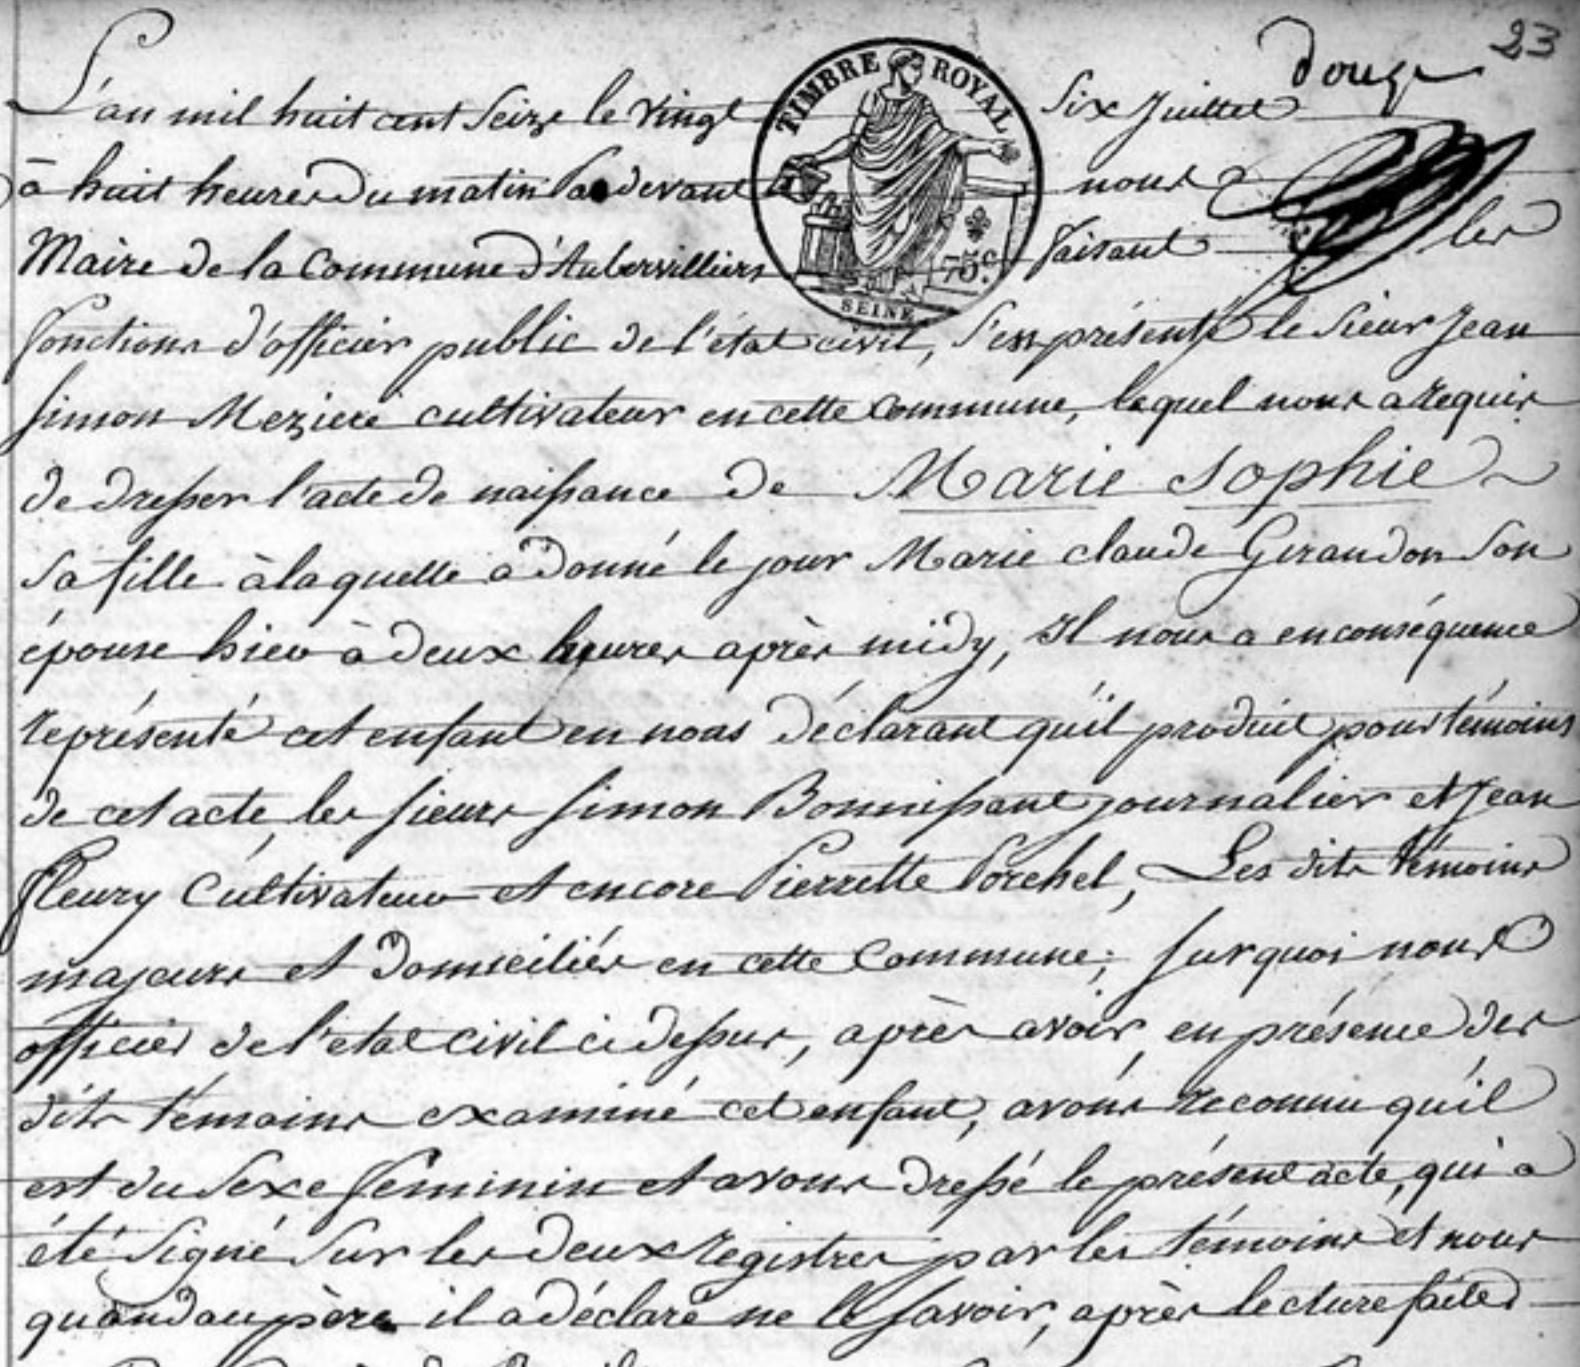 23
douze
L'an mil huit cent Seize le vingt Six Juillet
TIMBRE ROYAL
75 c.
SEINE
à huit heures du matin Pardevant nous
Maire de la Commune d'Aubervilliers faisant les
fonctions d'officier public de l'état civil, S'est présenté le Sieur Jean
Simon Meziere cultivateur en cette Commune, lequel nous a requis
de dresser l'acte de naissance de Marie Sophie
Sa fille à laquelle a donné le jour Marie Claude Geraudon Son
épouse hier à deux heures après midy, Il nous a en conséquence
représenté cet enfant en nous déclarant qu'il produit pour témoins
de cet acte les Sieurs Simon Bonnissant journalier et Jean
fleury Cultivateur et encore Pierrette Porchel, Les dits témoins
majeurs et domiciliés en cette Commune; Surquoi nous
officier de l'etat civil ci dessus, après avoir, en présence des
dits témoins examiné cet enfant, avons reconnu qu'il
est du Sexe feminin et avons dressé le présent acte, qui a
été Signé Sur les deux registres par les témoins et nous
quand au père il a déclaré ne le Savoir, après lecture faite